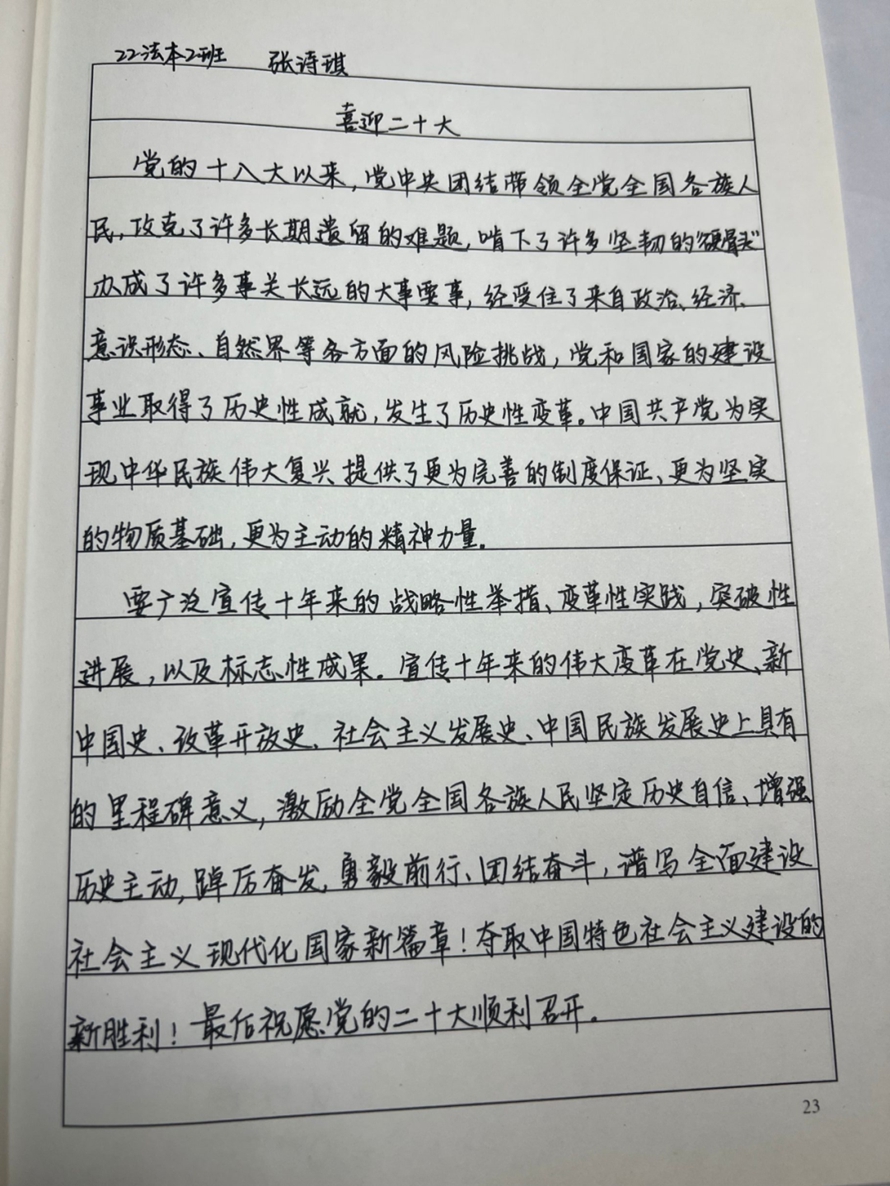 22法本2班 张诗琪
喜迎二十大
党的十八大以来，党中央团结带领全党全国各族人
民，攻克了许多长期遗留的难题，啃下了许多坚韧的“硬骨头”
办成了许多事关长远的大事要事，经受住了来自政治、经济、
意识形态、自然界等各方面的风险挑战，党和国家的建设
事业取得了历史性成就，发生了历史性变革。中国共产党为实
现中华民族伟大复兴提供了更为完善的制度保证、更为坚实
的物质基础，更为主动的精神力量。
要广泛宣传十年来的战略性举措、变革性实践，突破性
进展，以及标志性成果。宣传十年来的伟大变革在党史、新
中国史、改革开放史、社会主义发展史、中国民族发展史上具有
的里程碑意义，激励全党全国各族人民坚定历史自信、增强
历史主动，踔厉奋发，勇毅前行、团结奋斗，谱写全面建设
社会主义现代化国家新篇章！夺取中国特色社会主义建设的
新胜利！最后祝愿党的二十大顺利召开。
23